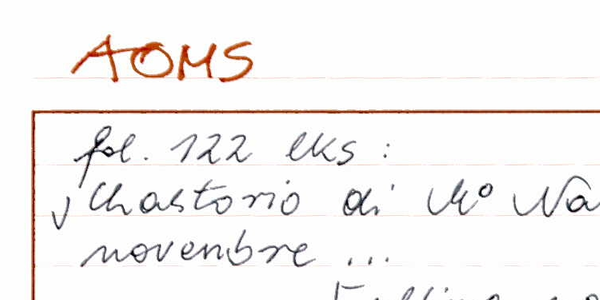 AOMS
fol. 122 lks :
Chastorio di Mº Na
novenbre ...